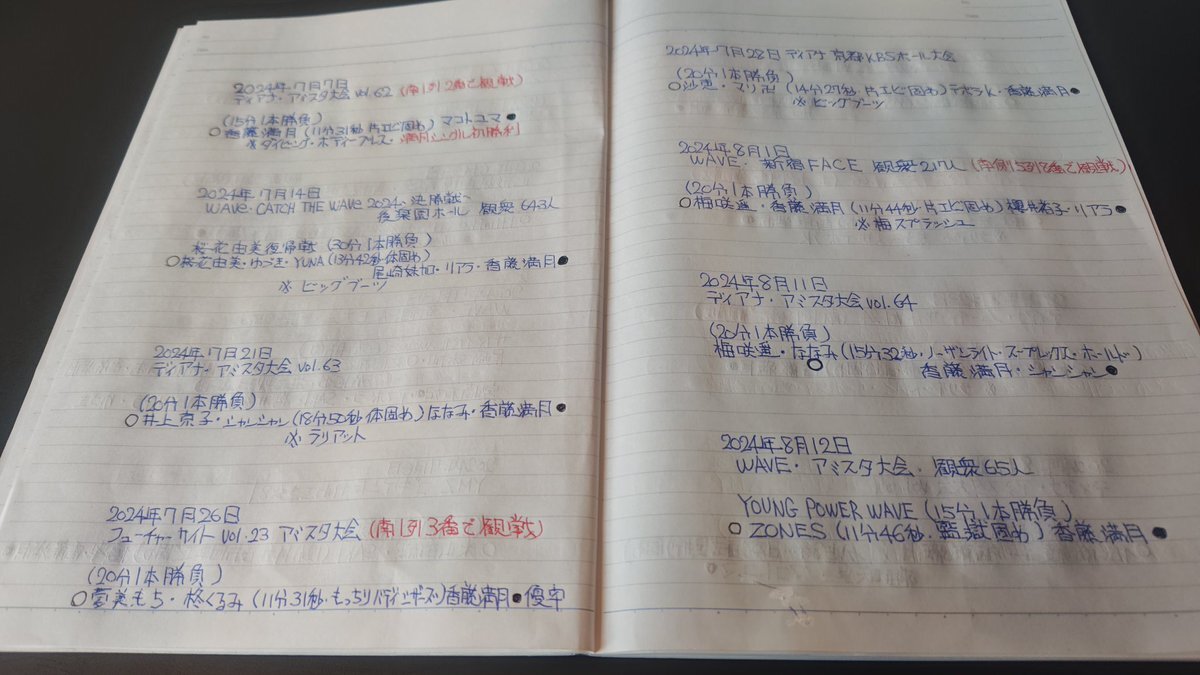 2024年7月7日
ディアナ・アミスタ大会 vol.62 (南1列2番で観戦)
(15分1本勝負)
○香藤満月 (11分31秒・片エビ固め) マコトユマ●
※ダイビング・ボディープレス・満月シングル初勝利
2024年7月14日
WAVE・CATCH THE WAVE 2024~決勝戦~
後楽園ホール 観衆643人
桜花由美復帰戦 (30分1本勝負)
○桜花由美・ゆづき・YUNA (13分42秒・体固め)
尾崎妹加・リアラ・香藤満月●
※ビッグブーツ
2024年7月21日
ディアナ・アミスタ大会 vol.63
(20分1本勝負)
○井上京子・シャンシャン (18分50秒・体固め) ななみ・香藤満月●
※ラリアット
2024年7月26日
フューチャーサイト vol.23 アミスタ大会 (南1列3番で観戦)
(20分1本勝負)
○愛美もち・柊くるみ (11分31秒・もっちりバディ) 香藤満月●優宇
2024年7月28日 ディアナ 京都KBSホール大会
(20分1本勝負)
○沙恵・マリ卍 (14分27秒・片エビ固め) デボラK・香藤満月●
※ビッグブーツ
2024年8月1日
WAVE・新宿FACE 観衆217人 (南側15列8番で観戦)
(20分1本勝負)
○梅咲遥・香藤満月 (11分44秒・片エビ固め) 櫻井裕子・リアラ●
※梅スプラッシュ
2024年8月11日
ディアナ・アミスタ大会 vol.64
(20分1本勝負)
梅咲遥・ななみ (15分32秒・ノーザンライト・スープレックス・ホールド)
○
香藤満月・シャンシャン●
2024年8月12日
WAVE・アミスタ大会・観衆65人
YOUNG POWER WAVE (15分1本勝負)
○ZONES (11分46秒・監獄固め) 香藤満月●